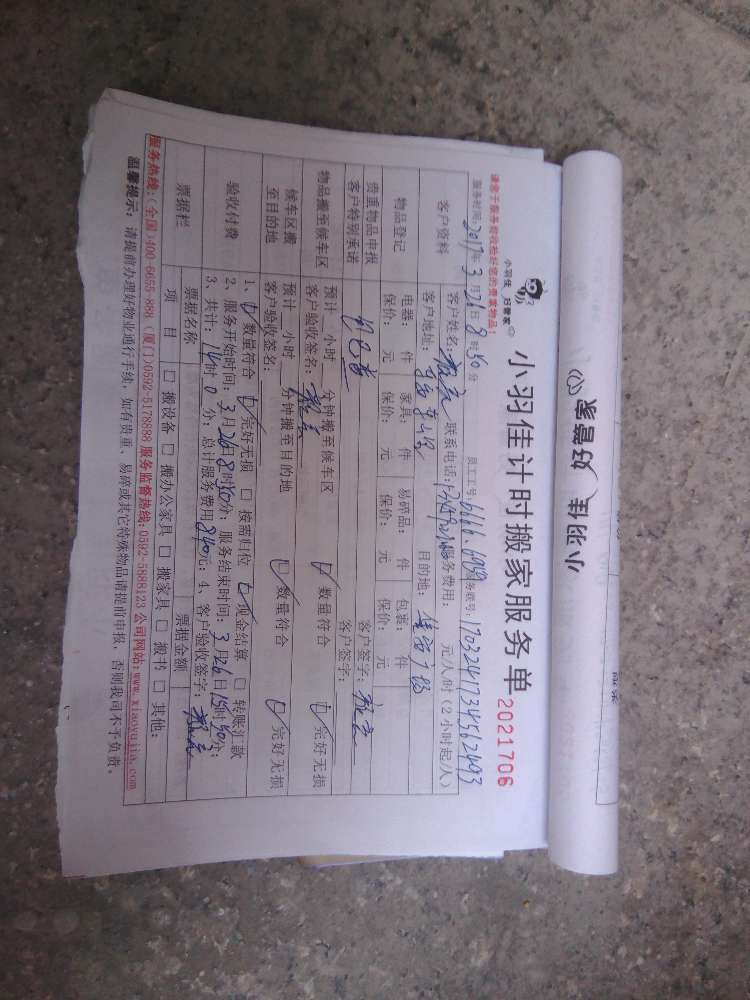 小羽佳 好管家
小羽佳 好管家
小羽佳计时搬家服务单
2021706
请您于服务前收检好您的贵重物品！
服务时间：2017年3月26日8时30分 员工工号： 务联号：
客户资料
客户姓名： 联系电话： 服务费用： 元/人/时（2小时起/人）
客户地址： 目的地：
物品登记
电器： 件 家具： 件 易碎品： 件 包裹： 件
保价： 元 保价： 元 保价： 元 保价： 元
贵重物品申报 客户签字：
客户特别承诺 客户签字：
物品搬至候车区
预计 小时 分钟搬至候车区 数量符合 完好无损
客户验收签名：
候车区搬至目的地
预计 小时 分钟搬至目的地 数量符合 完好无损
客户验收签名：
验收付费
1、数量符合 完好无损 按需归位 现金结算 转账汇款
2、服务开始时间：3月26日8时30分；服务结束时间：3月26日15时30分；
3、共计：14时0分；总计服务费用840元；4、客户验收签字：
票据栏
票据名称 票据金额
项目 搬设备 搬办公家具 搬家具 搬书 其他：
服务热线：(全国)400-6655-888 (厦门)0592-5178888 服务监督热线：0592-5888123 公司网站：www.xiaoyujia.com
温馨提示：请提前办理好物业通行手续，如有贵重、易碎或其它特殊物品请提前申报，否则我司不予负责。